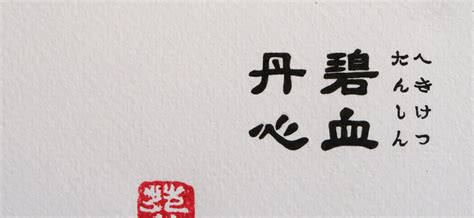 碧血
丹心
へきけつ
たんしん